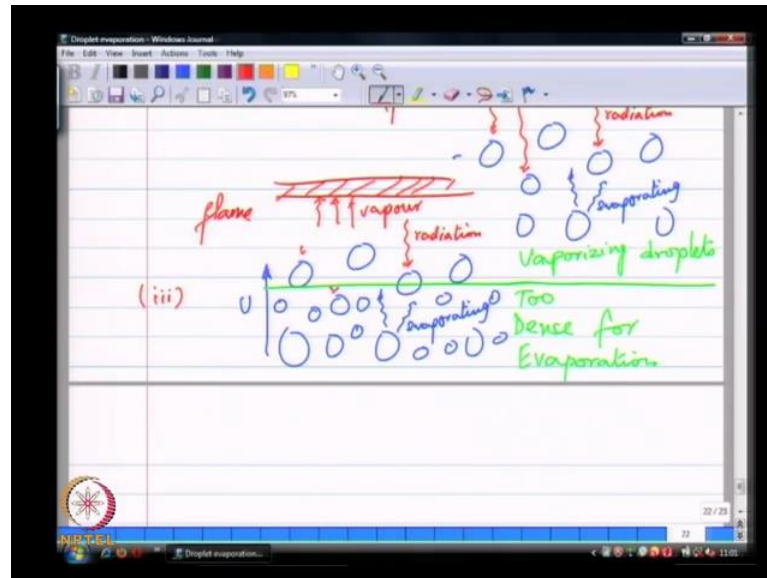 Droplet evaporation - Windows Journal
File Edit View Insert Actions Tools Help
B I
97%
radiation
evaporating
flame
vapour
radiation
Vaporizing droplets
(iii)
U
evaporating
Too
Dense for
Evaporation
22 / 23
22
NPTEL
Droplet evaporation...
11:01